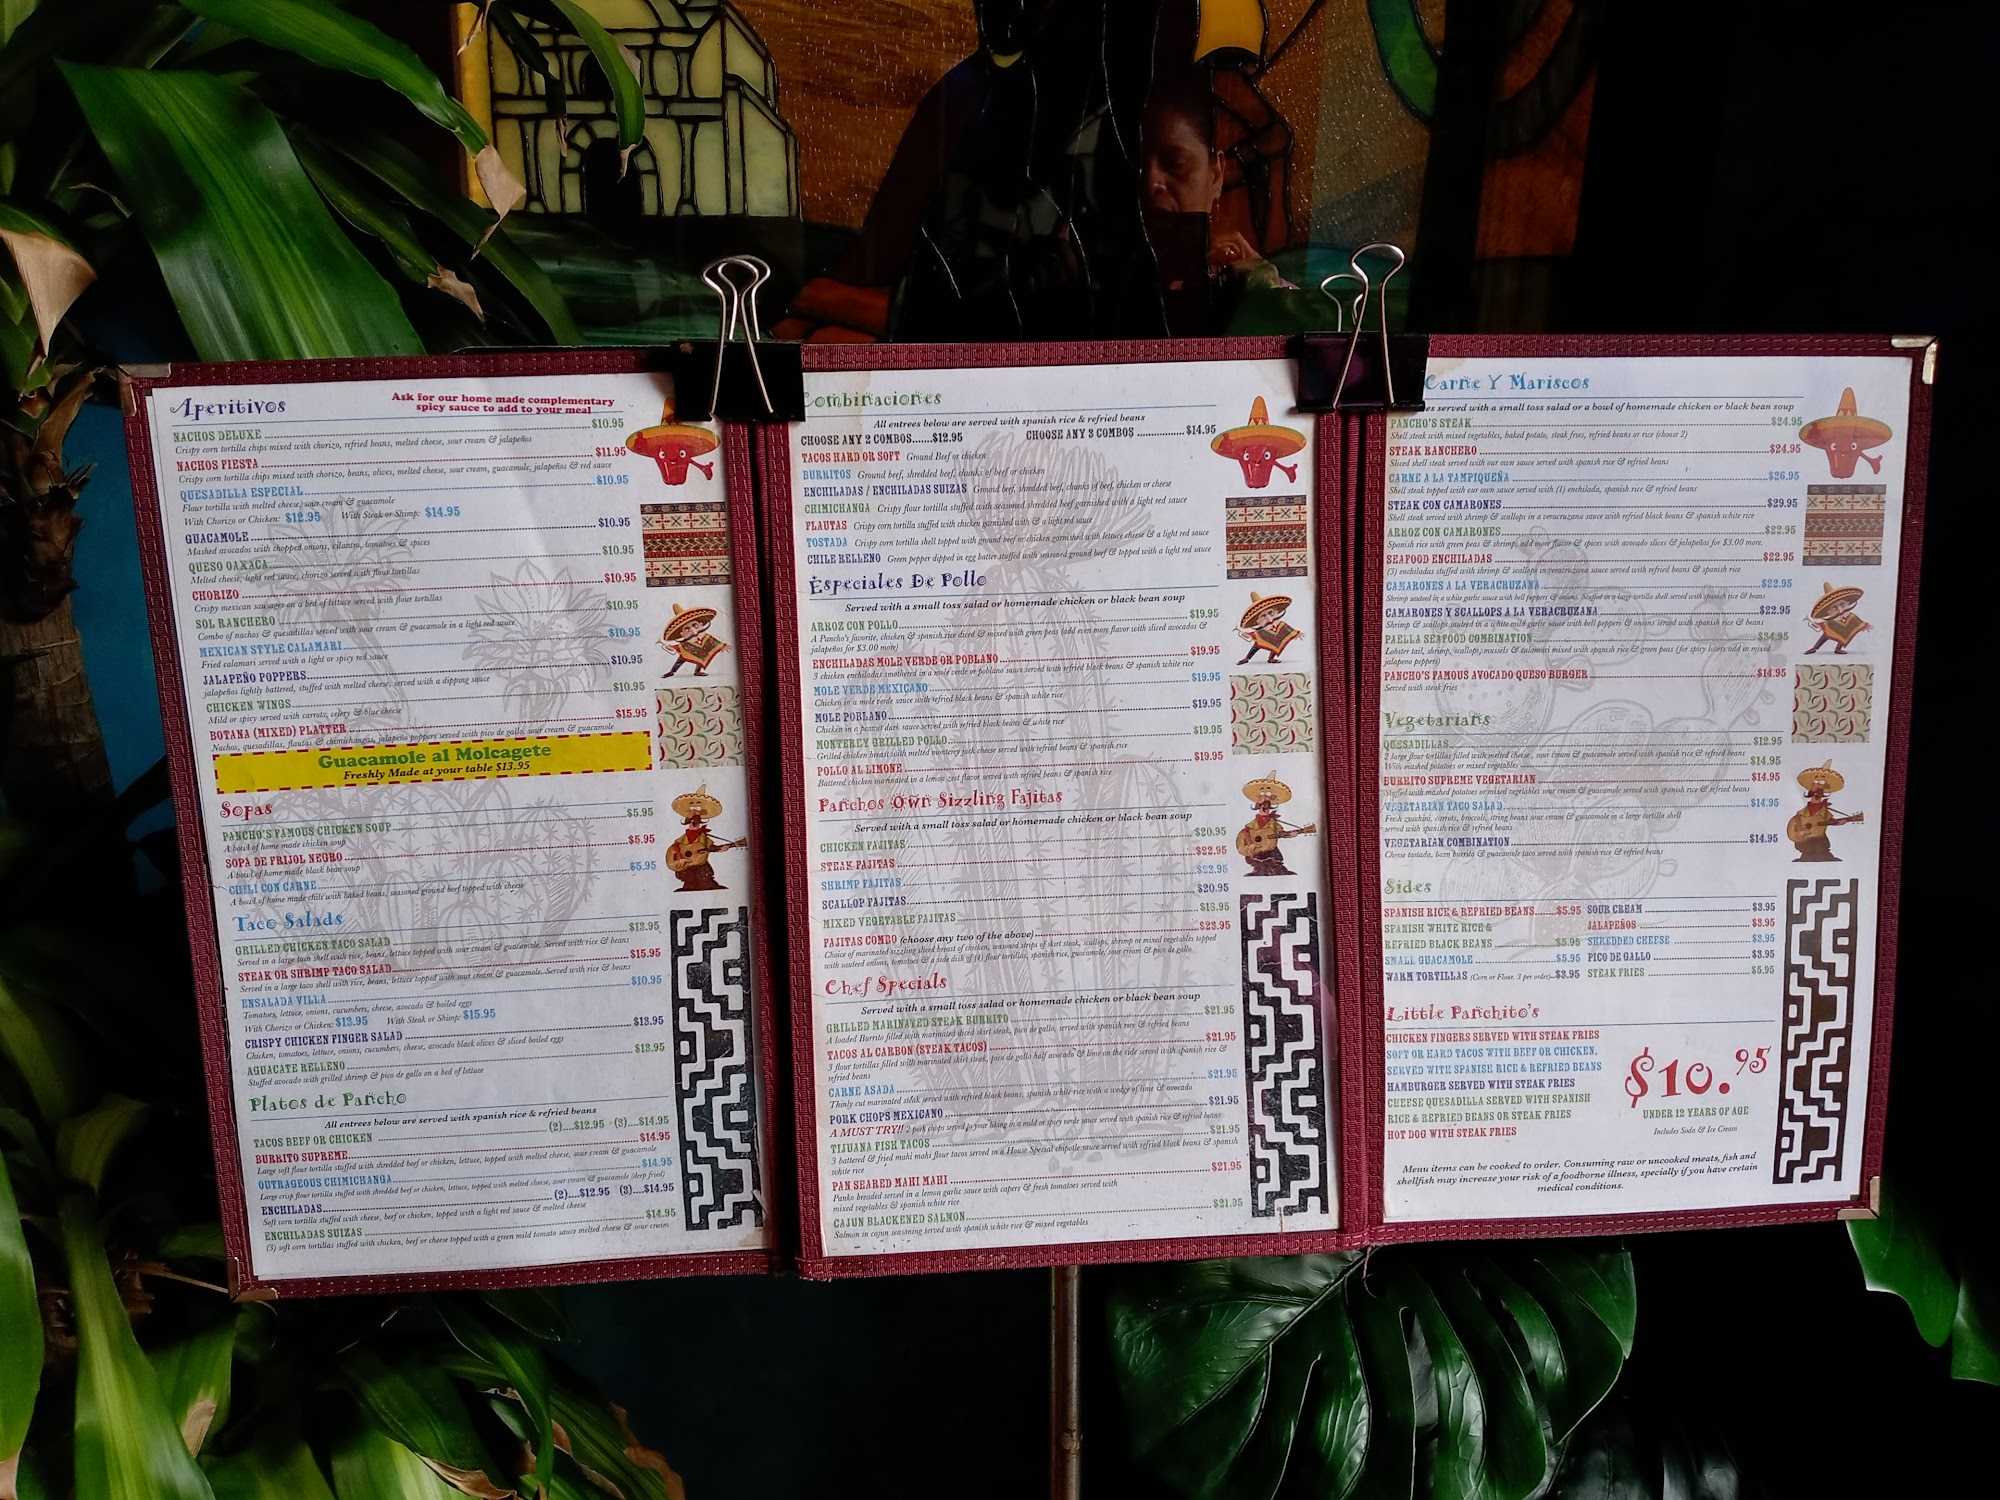 Aperitivos
Ask for our home made complementary
spicy sauce to add to your meal
NACHOS DELUXE $10.95
Crispy corn tortilla chips mixed with chorizo, refried beans, melted cheese, sour cream & jalapeños
NACHOS FIESTA $11.95
Crispy corn tortilla chips mixed with chorizo, beans, olives, melted cheese, sour cream, guacamole, jalapeños & red sauce
QUESADILLA ESPECIAL $10.95
Flour tortilla with melted cheese, sour cream & guacamole
With Chorizo or Chicken: $12.95 With Steak or Shrimp: $14.95
GUACAMOLE $10.95
Mashed avocados with chopped onions, cilantro, tomatoes & spices
QUESO OAXACA $10.95
Melted cheese, light red sauce, chorizo served with flour tortillas
CHORIZO $10.95
Crispy mexican sausages on a bed of lettuce served with flour tortillas
SOL RANCHERO $10.95
Combo of nachos & quesadillas served with sour cream & guacamole in a light red sauce
MEXICAN STYLE CALAMARI $10.95
Fried calamari served with a light or spicy red sauce
JALAPEÑO POPPERS $10.95
jalapeños lightly battered, stuffed with melted cheese, served with a dipping sauce
CHICKEN WINGS $10.95
Mild or spicy served with carrots, celery & blue cheese
BOTANA (MIXED) PLATTER $15.95
Nachos, quesadillas, flautas & chimichangas, jalapeño poppers served with pico de gallo, sour cream & guacamole
Guacamole al Molcagete
Freshly Made at your table $13.95
Sopas
PANCHO'S FAMOUS CHICKEN SOUP $5.95
A bowl of home made chicken soup
SOPA DE FRIJOL NEGRO $5.95
A bowl of home made black bean soup
CHILI CON CARNE $5.95
A bowl of home made chili with baked beans, seasoned ground beef topped with cheese
Taco Salads
GRILLED CHICKEN TACO SALAD $12.95
Served in a large taco shell with rice, beans, lettuce topped with sour cream & guacamole. Served with rice & beans
STEAK OR SHRIMP TACO SALAD $15.95
Served in a large taco shell with rice, beans, lettuce topped with sour cream & guacamole. Served with rice & beans
ENSALADA VILLA $10.95
Tomatoes, lettuce, onions, cucumbers, cheese, avocado & boiled eggs
With Chorizo or Chicken: $13.95 With Steak or Shimp: $15.95
CRISPY CHICKEN FINGER SALAD $13.95
Chicken, tomatoes, lettuce, onions, cucumbers, cheese, avocado black olives & sliced boiled eggs
AGUACATE RELLENO $13.95
Stuffed avocado with grilled shrimp & pico de gallo on a bed of lettuce
Platos de Pancho
All entrees below are served with spanish rice & refried beans
TACOS BEEF OR CHICKEN (2)....$12.95 - (3)....$14.95
BURRITO SUPREME $14.95
Large soft flour tortilla stuffed with shredded beef or chicken, lettuce, topped with melted cheese, sour cream & guacamole
OUTRAGEOUS CHIMICHANGA $14.95
Large crisp flour tortilla stuffed with shredded beef or chicken, lettuce, topped with melted cheese, sour cream & guacamole (deep fried)
ENCHILADAS (2)....$12.95 (3)....$14.95
Soft corn tortilla stuffed with cheese, beef or chicken, topped with a light red sauce & melted cheese
ENCHILADAS SUIZAS $14.95
(3) soft corn tortillas stuffed with chicken, beef or cheese topped with a green mild tomato sauce melted cheese & sour cream
ombinaciones
All entrees below are served with spanish rice & refried beans
CHOOSE ANY 2 COMBOS......$12.95 CHOOSE ANY 3 COMBOS $14.95
TACOS HARD OR SOFT Ground Beef or chicken
BURRITOS Ground beef, shredded beef, chunks of beef or chicken
ENCHILADAS / ENCHILADAS SUIZAS Ground beef, shredded beef, chunks of beef, chicken or cheese
CHIMICHANGA Crispy flour tortilla stuffed with seasoned shredded beef garnished with a light red sauce
FLAUTAS Crispy corn tortilla stuffed with chicken garnished with & a light red sauce
TOSTADA Crispy corn tortilla shell topped with ground beef or chicken garnished with lettuce cheese & a light red sauce
CHILE RELLENO Green pepper dipped in egg batter stuffed with seasoned ground beef & topped with a light red sauce
Especiales De Pollo
Served with a small toss salad or homemade chicken or black bean soup
ARROZ CON POLLO $19.95
A Pancho's favorite, chicken & spanish rice diced & mixed with green peas (add even more flavor with sliced avocados &
jalapeños for $3.00 more)
ENCHILADAS MOLE VERDE OR POBLANO $19.95
3 chicken enchiladas smothered in a mole verde or poblano sauce served with refried black beans & spanish white rice
MOLE VERDE MEXICANO $19.95
Chicken in a mole verde sauce with refried black beans & spanish white rice
MOLE POBLANO $19.95
Chicken in a peanut dark sauce served with refried black beans & white rice
MONTEREY GRILLED POLLO $19.95
Grilled chicken breast with melted monterey jack cheese served with refried beans & spanish rice
POLLO AL LIMONE $19.95
Battered chicken marinated in a lemon zest flavor served with refried beans & spanish rice
Panchos Own Sizzling Fajitas
Served with a small toss salad or homemade chicken or black bean soup
CHICKEN FAJITAS $20.95
STEAK FAJITAS $22.95
SHRIMP FAJITAS $22.95
SCALLOP FAJITAS $20.95
MIXED VEGETABLE FAJITAS $18.95
FAJITAS COMBO (choose any two of the above) $23.95
Choice of marinated sizzling sliced breast of chicken, seasoned strips of skirt steak, scallops, shrimp or mixed vegetables topped
with sauteed onions, tomatoes & a side dish of (4) flour tortillas, spanish rice, guacamole, sour cream & pico de gallo
Chef Specials
Served with a small toss salad or homemade chicken or black bean soup
GRILLED MARINAYED STEAK BURRITO $21.95
A loaded Burrito filled with marinated diced skirt steak, pico de gallo, served with spanish rice & refried beans
TACOS AL CARBON (STEAK TACOS) $21.95
3 flour tortillas filled with marinated skirt steak, pico de gallo half avocado & lime on the side served with spanish rice &
refried beans
CARNE ASADA $21.95
Thinly cut marinated steak served with refried black beans, spanish white rice with a wedge of lime & avocado
PORK CHOPS MEXICANO $21.95
A MUST TRY!! 2 pork chops served to your liking in a mild or spicy verde sauce served with spanish rice & refried beans
TIJUANA FISH TACOS $21.95
3 battered & fried mahi mahi flour tacos served in a House Special chipotle sauce served with refried black beans & spanish
white rice
PAN SEARED MAHI MAHI $21.95
Panko breaded served in a lemon garlic sauce with capers & fresh tomatoes served with
mixed vegetables & spanish white rice
CAJUN BLACKENED SALMON $21.95
Salmon in cajun seasoning served with spanish white rice & mixed vegetables
Carne Y Mariscos
es served with a small toss salad or a bowl of homemade chicken or black bean soup
PANCHO'S STEAK $24.95
Shell steak with mixed vegetables, baked potato, steak fries, refried beans or rice (choose 2)
STEAK RANCHERO $24.95
Sliced shell steak served with our own sauce served with spanish rice & refried beans
CARNE A LA TAMPIQUEÑA $26.95
Shell steak topped with our own sauce served with (1) enchilada, spanish rice & refried beans
STEAK CON CAMARONES $29.95
Shell steak served with shrimp & scallops in a veracruzana sauce with refried black beans & spanish white rice
ARROZ CON CAMARONES $22.95
Spanish rice with green peas & shrimp, add more flavor & spices with avocado slices & jalapeños for $3.00 more.
SEAFOOD ENCHILADAS $22.95
(3) enchiladas stuffed with shrimp & scallops in veracruzana sauce served with refried beans & spanish rice
CAMARONES A LA VERACRUZANA $22.95
Shrimp sauteed in a white garlic sauce with bell peppers & onions. Stuffed in a large tortilla shell served with spanish rice & beans
CAMARONES Y SCALLOPS A LA VERACRUZANA $22.95
Shrimp & scallops sauteed in a white mild garlic sauce with bell peppers & onions served with spanish rice & beans
PAELLA SEAFOOD COMBINATION $34.95
Lobster tail, shrimp, scallops, mussels & calamari mixed with spanish rice & green peas (for spicy lovers add in mixed
jalapeno peppers)
PANCHO'S FAMOUS AVOCADO QUESO BURGER $14.95
Served with steak fries
Vegetarians
QUESADILLAS $12.95
2 large flour tortillas filled with melted cheese, sour cream & guacamole served with spanish rice & refried beans
With mashed potatoes or mixed vegetables $14.95
BURRITO SUPREME VEGETARIAN $14.95
Stuffed with mashed potatoes or mixed vegetables sour cream & guacamole served with spanish rice & refried beans
VEGETARIAN TACO SALAD $14.95
Fresh zucchini, carrots, broccoli, string beans sour cream & guacamole in a large tortilla shell
served with spanish rice & refried beans
VEGETARIAN COMBINATION $14.95
Cheese tostada, bean burrito & guacamole taco served with spanish rice & refried beans
Sides
SPANISH RICE & REFRIED BEANS $5.95 SOUR CREAM $3.95
SPANISH WHITE RICE & JALAPEÑOS $3.95
REFRIED BLACK BEANS $5.95 SHREDDED CHEESE $3.95
SMALL GUACAMOLE $5.95 PICO DE GALLO $3.95
WARM TORTILLAS (Corn or Flour, 3 per order) $3.95 STEAK FRIES $5.95
Little Panchito's
CHICKEN FINGERS SERVED WITH STEAK FRIES
SOFT OR HARD TACOS WITH BEEF OR CHICKEN,
SERVED WITH SPANISH RICE & REFRIED BEANS
HAMBURGER SERVED WITH STEAK FRIES
CHEESE QUESADILLA SERVED WITH SPANISH
RICE & REFRIED BEANS OR STEAK FRIES
HOT DOG WITH STEAK FRIES
$10.95
UNDER 12 YEARS OF AGE
Includes Soda & Ice Cream
Menu items can be cooked to order. Consuming raw or uncooked meats, fish and
shellfish may increase your risk of a foodborne illness, specially if you have cretain
medical conditions.